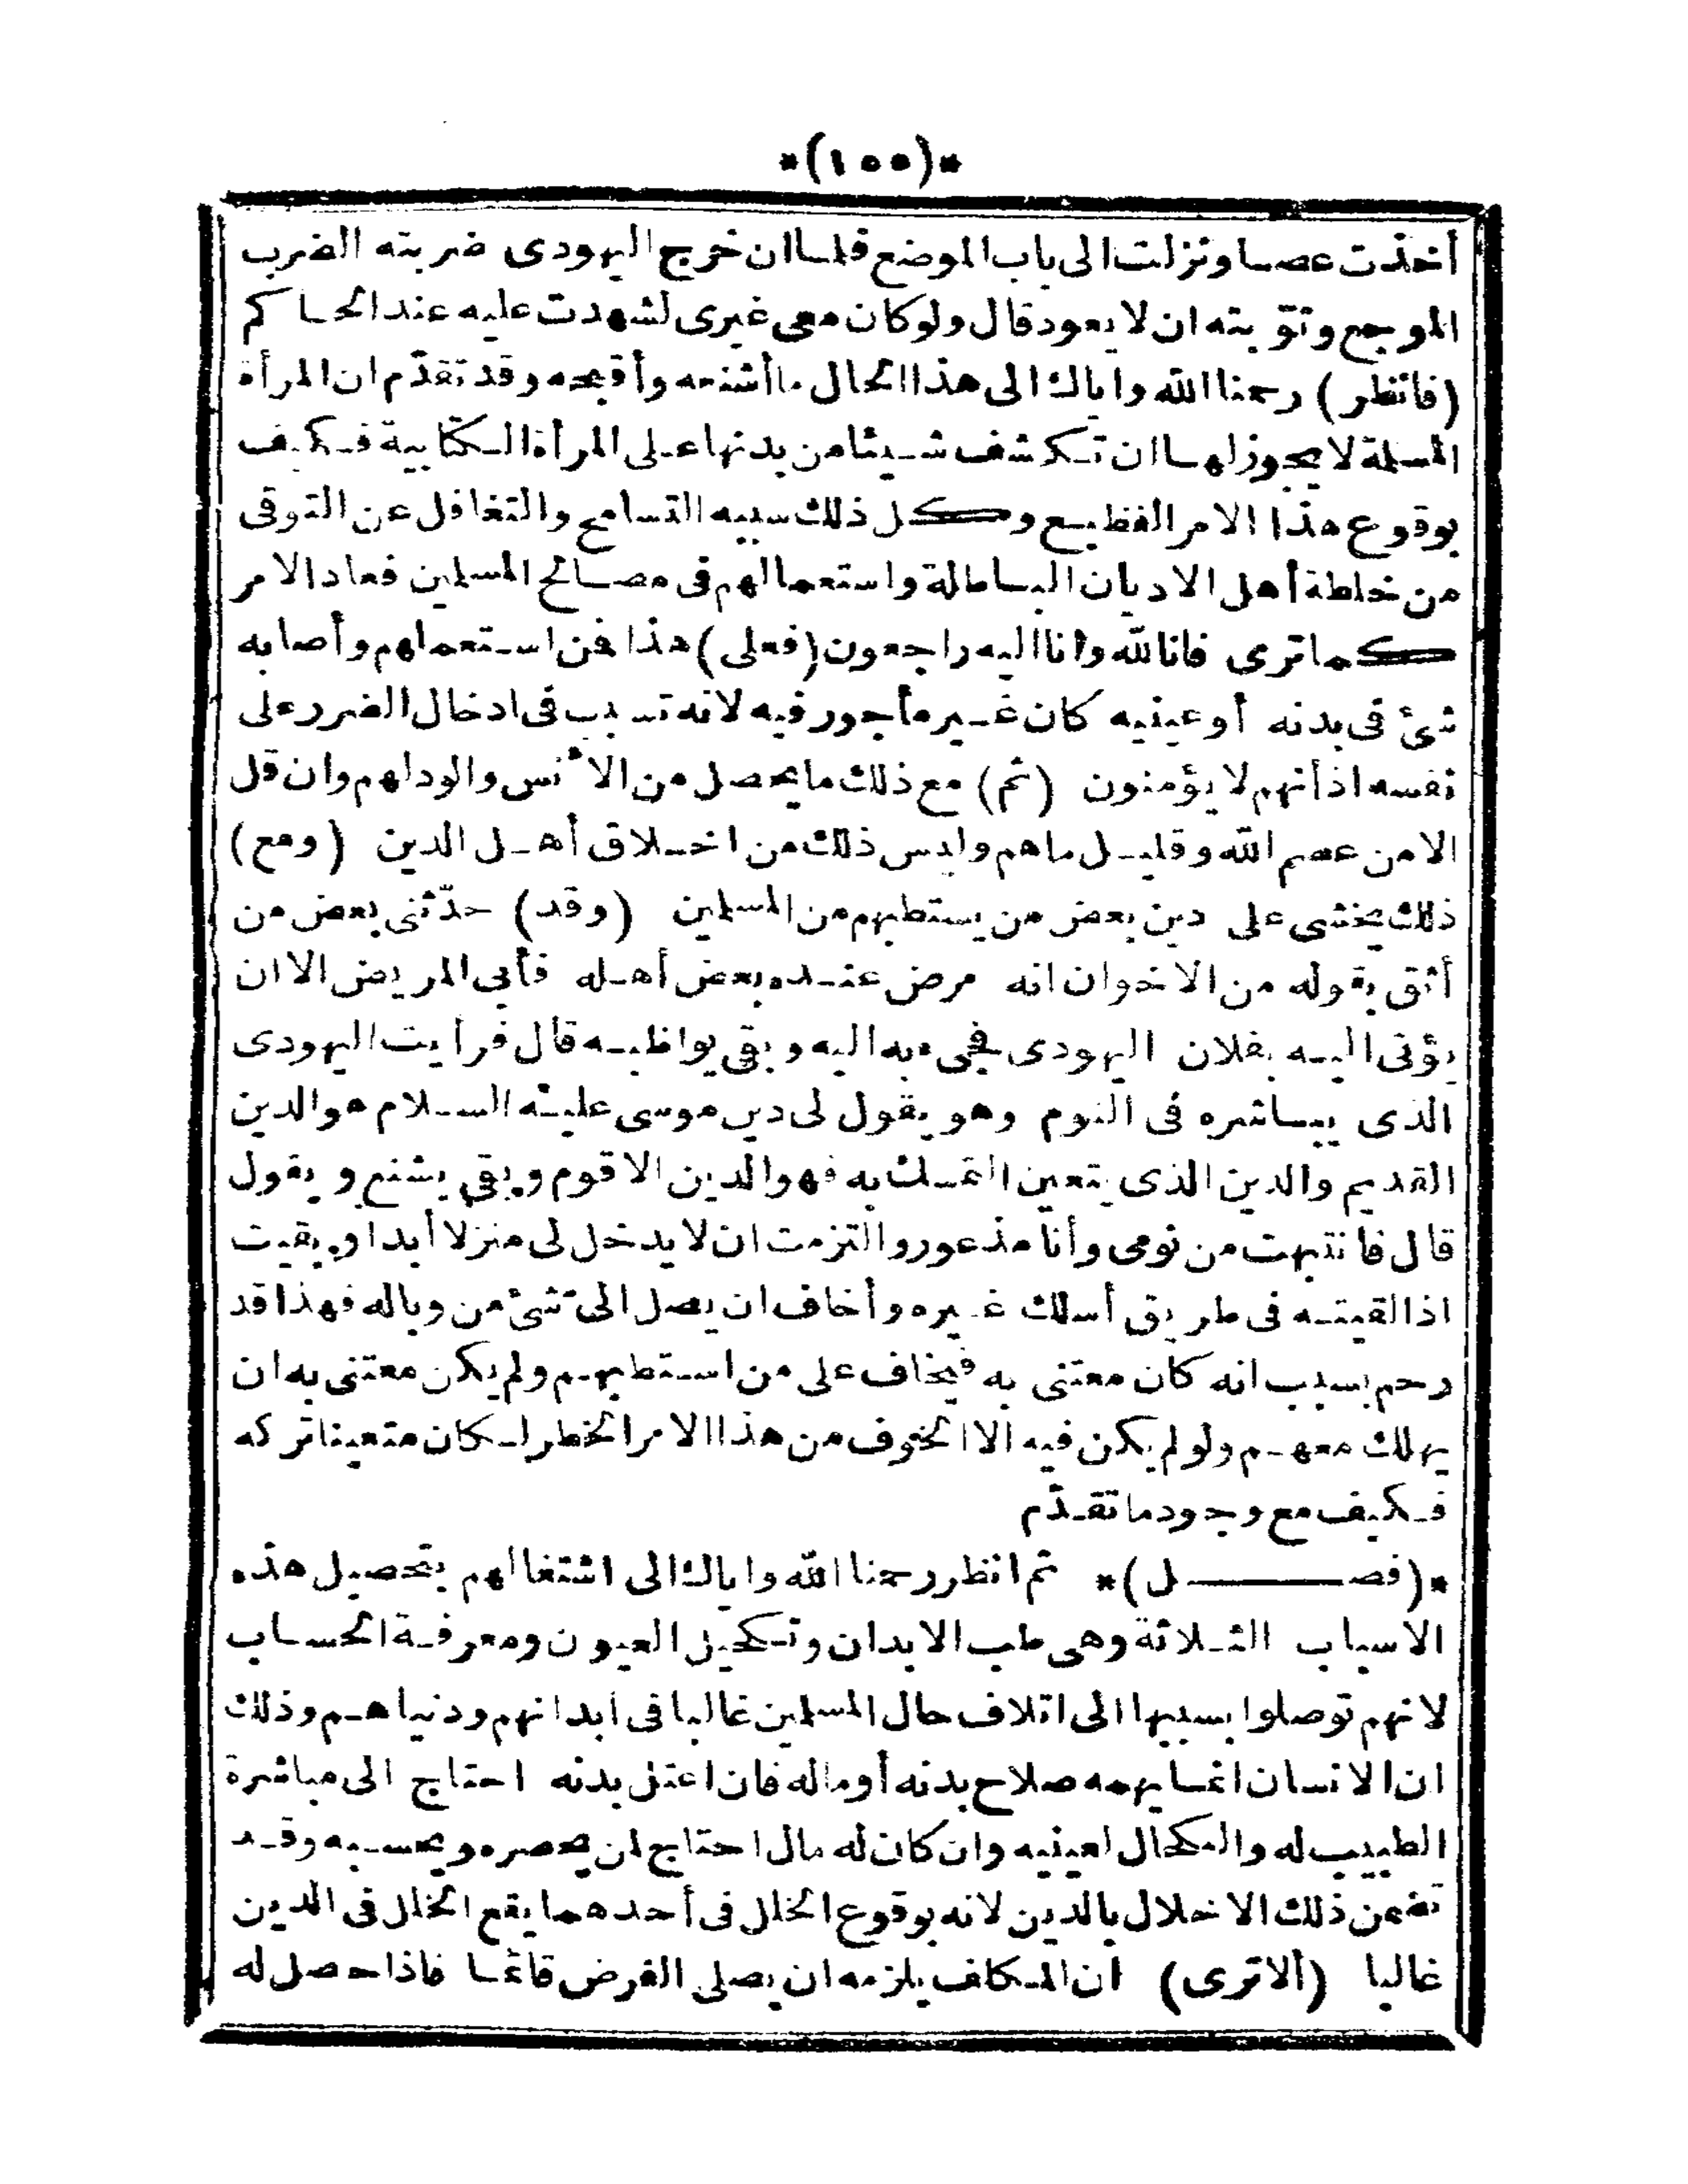 *(١٥٥)*
أخذت عصا ونزلت الى باب الموضع فلما ان خرج اليهودى ضربته الضرب
الموجع وتوّبته ان لا يعود قال ولو كان معى غيرى لشهدت عليه عند الحاكم
(فانظر) رحمنا الله واياك الى هذا الحال ما أشنعه وأقبحه وقد تقدّم ان المرأة
المسلمة لا يجوز لها ان تكشف شيئا من بدنها على المرأة الكتابية فكيف
بوقوع هذا الامر الفظيع وكل ذلك سببه التسامح والتغافل عن التوقى
من خلطة أهل الاديان الباطلة واستعمالهم فى مصالح المسلمين فعاد الامر
كما ترى فانا لله وانا اليه راجعون (فعلى) هذا فمن استعملهم وأصابه
شئ فى بدنه أو عينيه كان غير مأجور فيه لانه تسبب فى ادخال الضرر على
نفسه اذ أنهم لا يؤمنون (ثم) مع ذلك ما يحصل من الأنس والود لهم وان قل
الا من عصم الله وقليل ما هم وليس ذلك من اخلاق أهل الدين (ومع)
ذلك يخشى على دين بعض من يستطبهم من المسلمين (وقد) حدّثنى بعض من
أثق بقوله من الاخوان انه مرض عنده بعض أهله فأبى المريض الا ان
يؤتى اليه بفلان اليهودى فجىء به اليه وبقى يواظبه قال فرأيت اليهودى
الذى يباشره فى النوم وهو يقول لى دين موسى عليه السلام هو الدين
القديم والدين الذى يتعين التمسك به فهو الدين الاقوم وبقى يشنع ويقول
قال فانتبهت من نومى وأنا مذعور والتزمت ان لا يدخل لى منزلا أبدا وبقيت
اذا لقيته فى طريق أسلك غيره وأخاف ان يصل الىّ شئ من وباله فهذا قد
رحم بسبب انه كان معتنى به فيخاف على من استطبهم ولم يكن معتنى به ان
يهلك معهم ولو لم يكن فيه الا الخوف من هذا الامر الخطر لكان متعينا تركه
فكيف مع وجود ما تقدّم
*(فصل)* ثم انظر رحمنا الله واياك الى اشتغالهم بتحصيل هذه
الاسباب الثلاثة وهى طب الابدان وتكحيل العيون ومعرفة الحساب
لانهم توصلوا بسببها الى اتلاف حال المسلمين غالبا فى ابدانهم ودنياهم وذلك
ان الانسان انما يهمه صلاح بدنه أو ماله فان اعتل بدنه احتاج الى مباشرة
الطبيب له والكحال لعينيه وان كان له مال احتاج لمن يحصره ويحسبه وقد
تضمن ذلك الاخلال بالدين لانه بوقوع الخلل فى أحدهما يقع الخلل فى الدين
غالبا (ألا ترى) ان المكلف يلزمه ان يصلى الفرض قائما فاذا حصل له